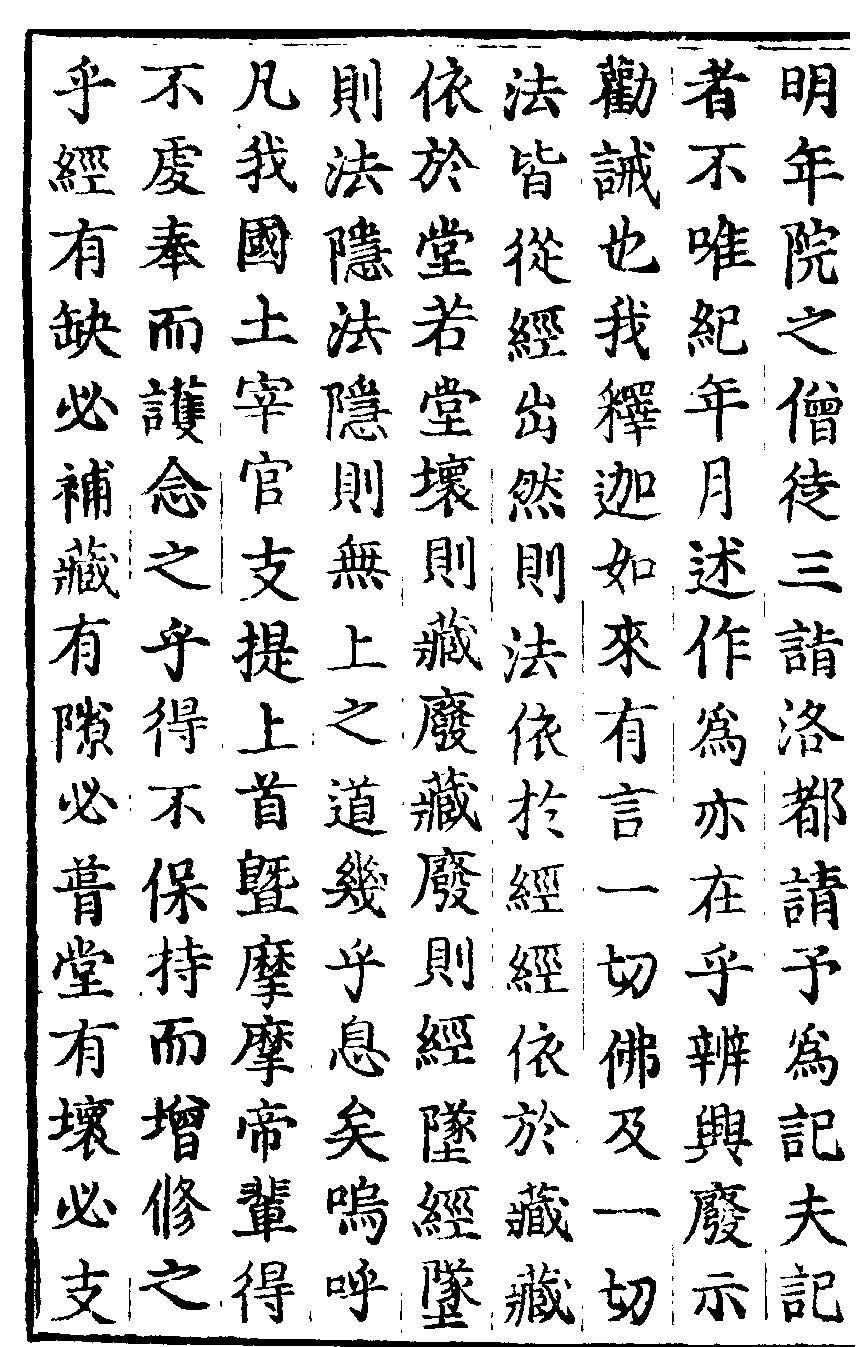 明年院之僧徒三詣洛都請予爲記夫記
者不唯紀年月述作爲亦在乎辨興廢示
勸誡也我釋迦如來有言一切佛及一切
法皆從經出然則法依於經經依於藏藏
依於堂若堂壞則藏廢藏廢則經墜經墜
則法隱法隱則無上之道幾乎息矣嗚呼
凡我國土宰官支提上首曁摩摩帝輩得
不虔奉而護念之乎得不保持而增修之
乎經有缺必補藏有隙必葺堂有壞必支